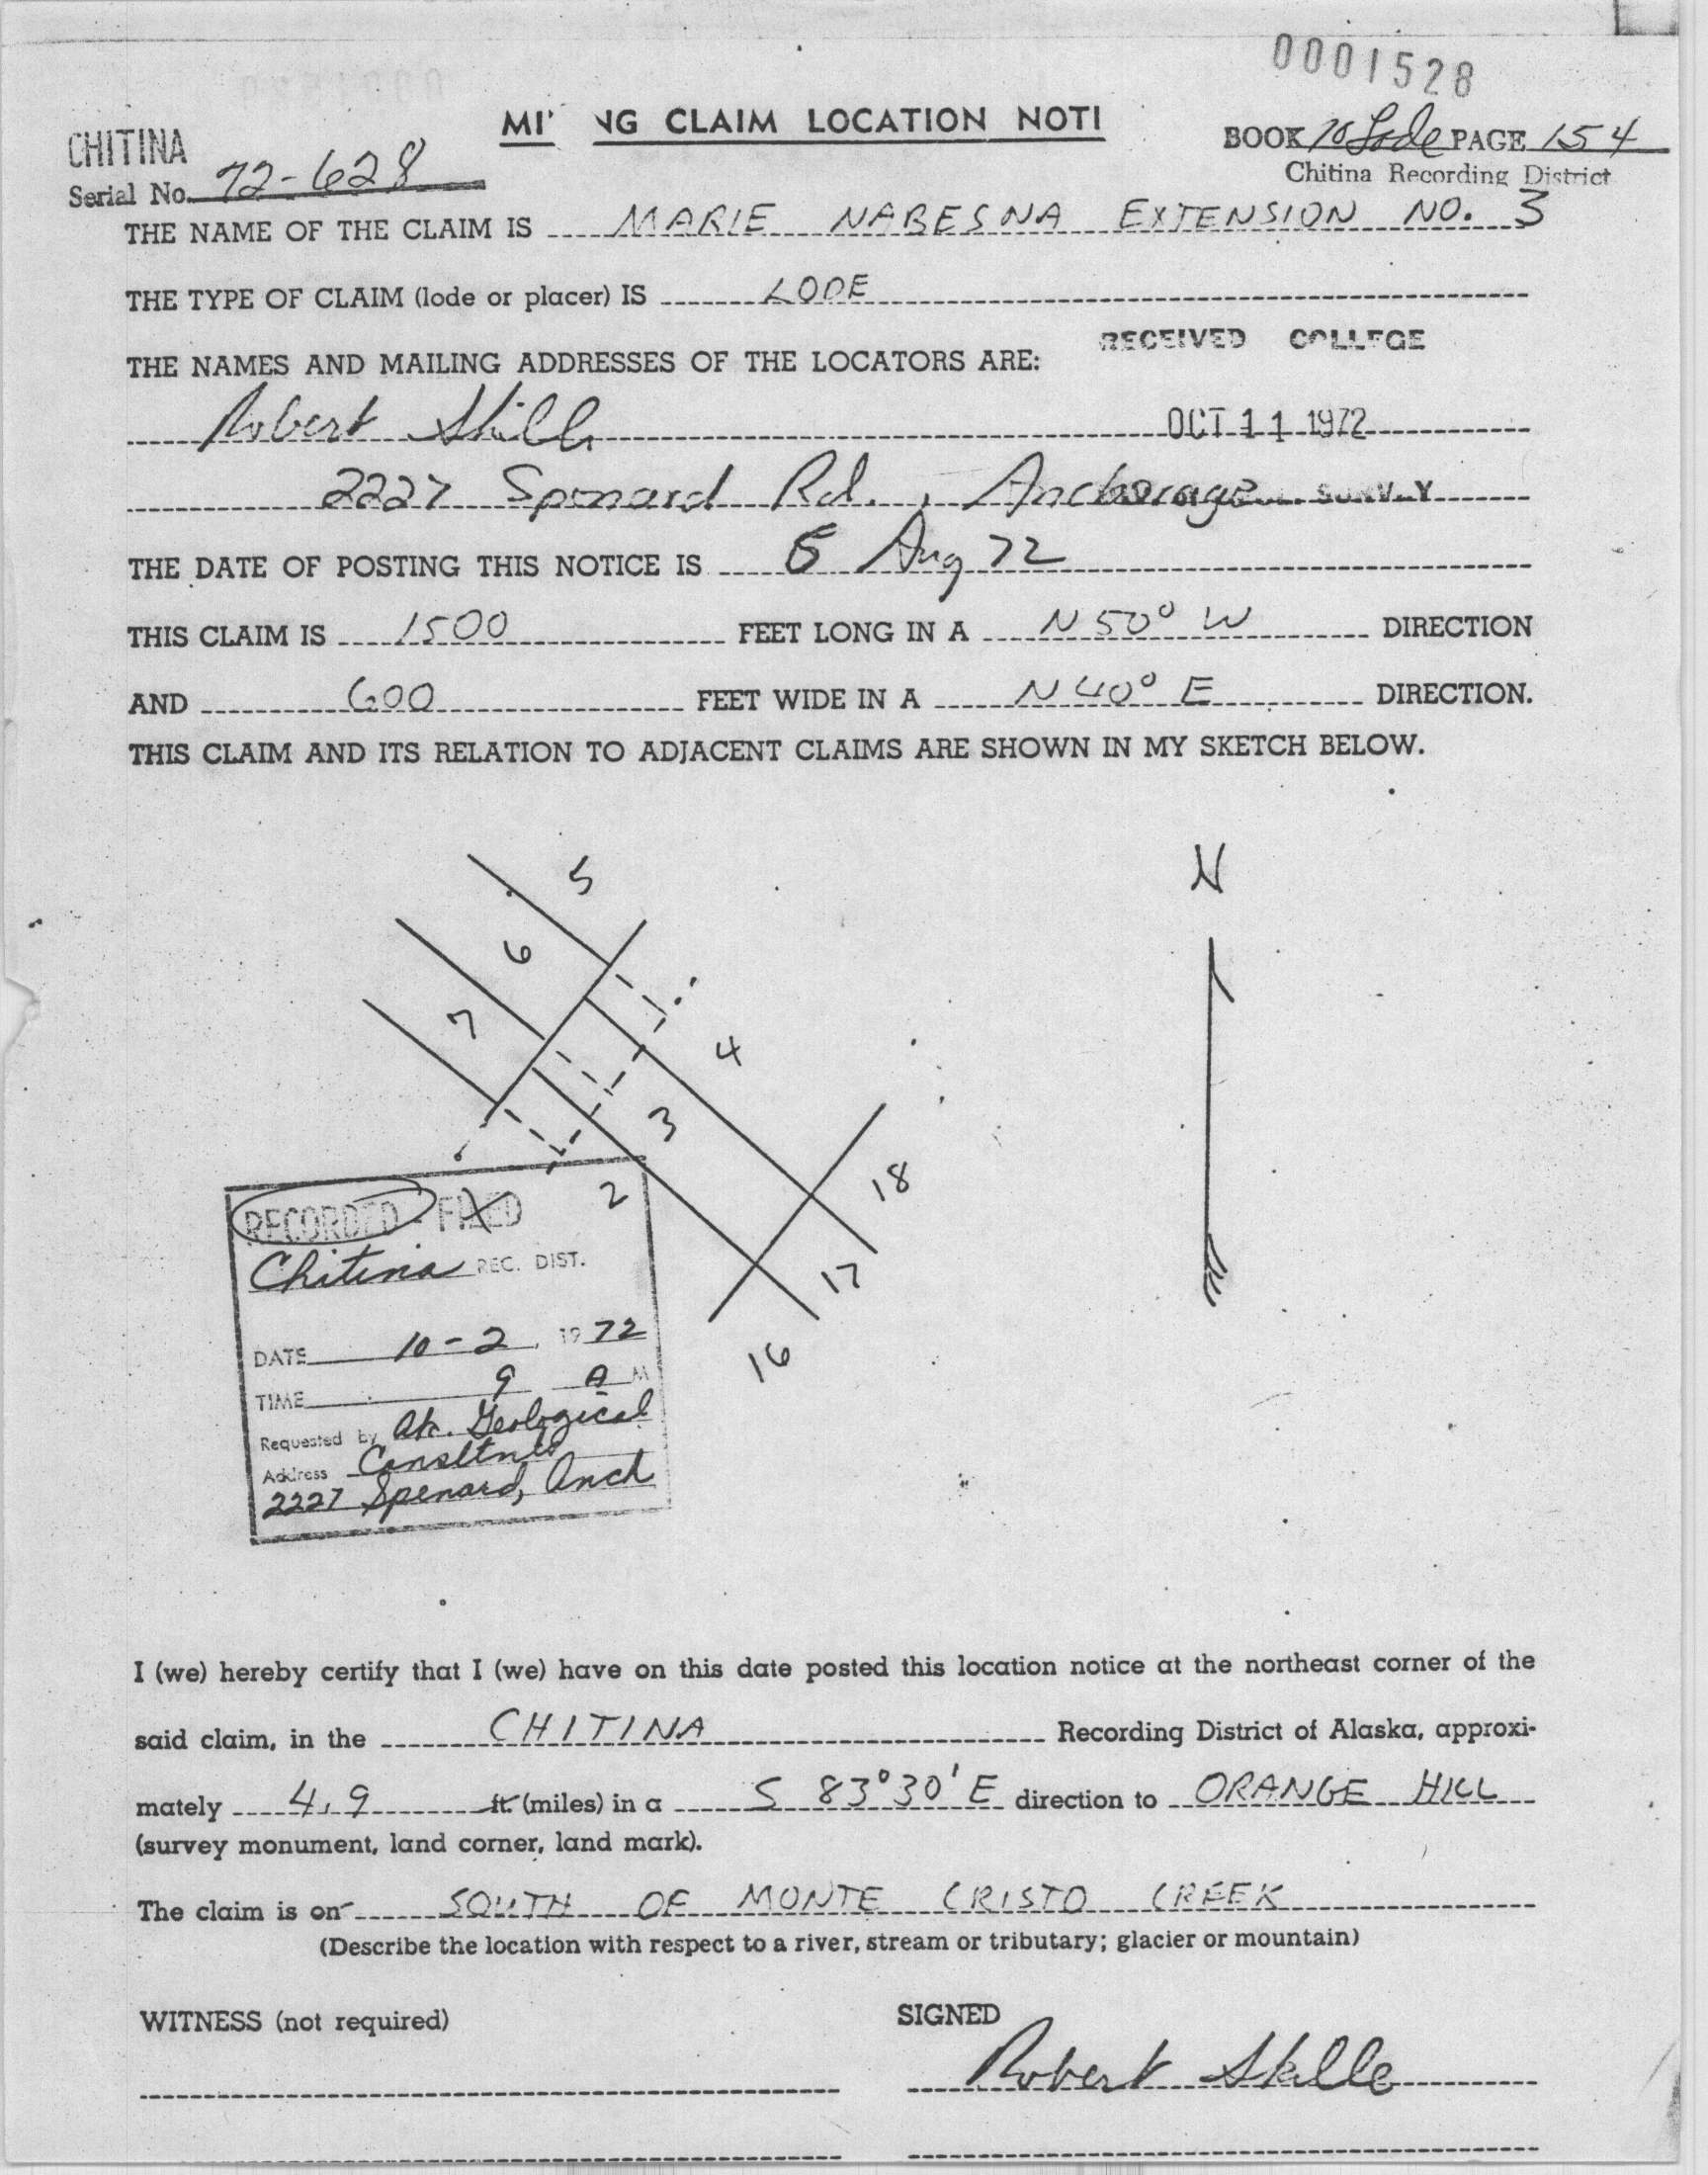 0001528
MI NG CLAIM LOCATION NOTI
CHITINA
BOOK 70 Lode PAGE 154
Chitina Recording District
Serial No. 72-628
THE NAME OF THE CLAIM IS MARIE NABESNA EXTENSION NO. 3
THE TYPE OF CLAIM (lode or placer) IS LODE
RECEIVED COLLEGE
THE NAMES AND MAILING ADDRESSES OF THE LOCATORS ARE:
Robert
OCT 11 1972
2227 Spenard Rd., Anchorage SURVEY
THE DATE OF POSTING THIS NOTICE IS Aug 72
THIS CLAIM IS 1500 FEET LONG IN A N 50° W DIRECTION
AND 600 FEET WIDE IN A N 40° E DIRECTION.
THIS CLAIM AND ITS RELATION TO ADJACENT CLAIMS ARE SHOWN IN MY SKETCH BELOW.
N
5
6
7
4
3
2
18
17
16
RECORDED - FILED
Chitina REC. DIST.
DATE 10-2, 1972
TIME 9 A M
Requested by Ak. Geological
Address Consltnts
2227 Spenard, Anch
I (we) hereby certify that I (we) have on this date posted this location notice at the northeast corner of the
said claim, in the CHITINA Recording District of Alaska, approxi-
mately 4.9 ft. (miles) in a S 83°30' E direction to ORANGE HILL
(survey monument, land corner, land mark).
The claim is on SOUTH OF MONTE CRISTO CREEK
(Describe the location with respect to a river, stream or tributary; glacier or mountain)
WITNESS (not required)
SIGNED
Robert